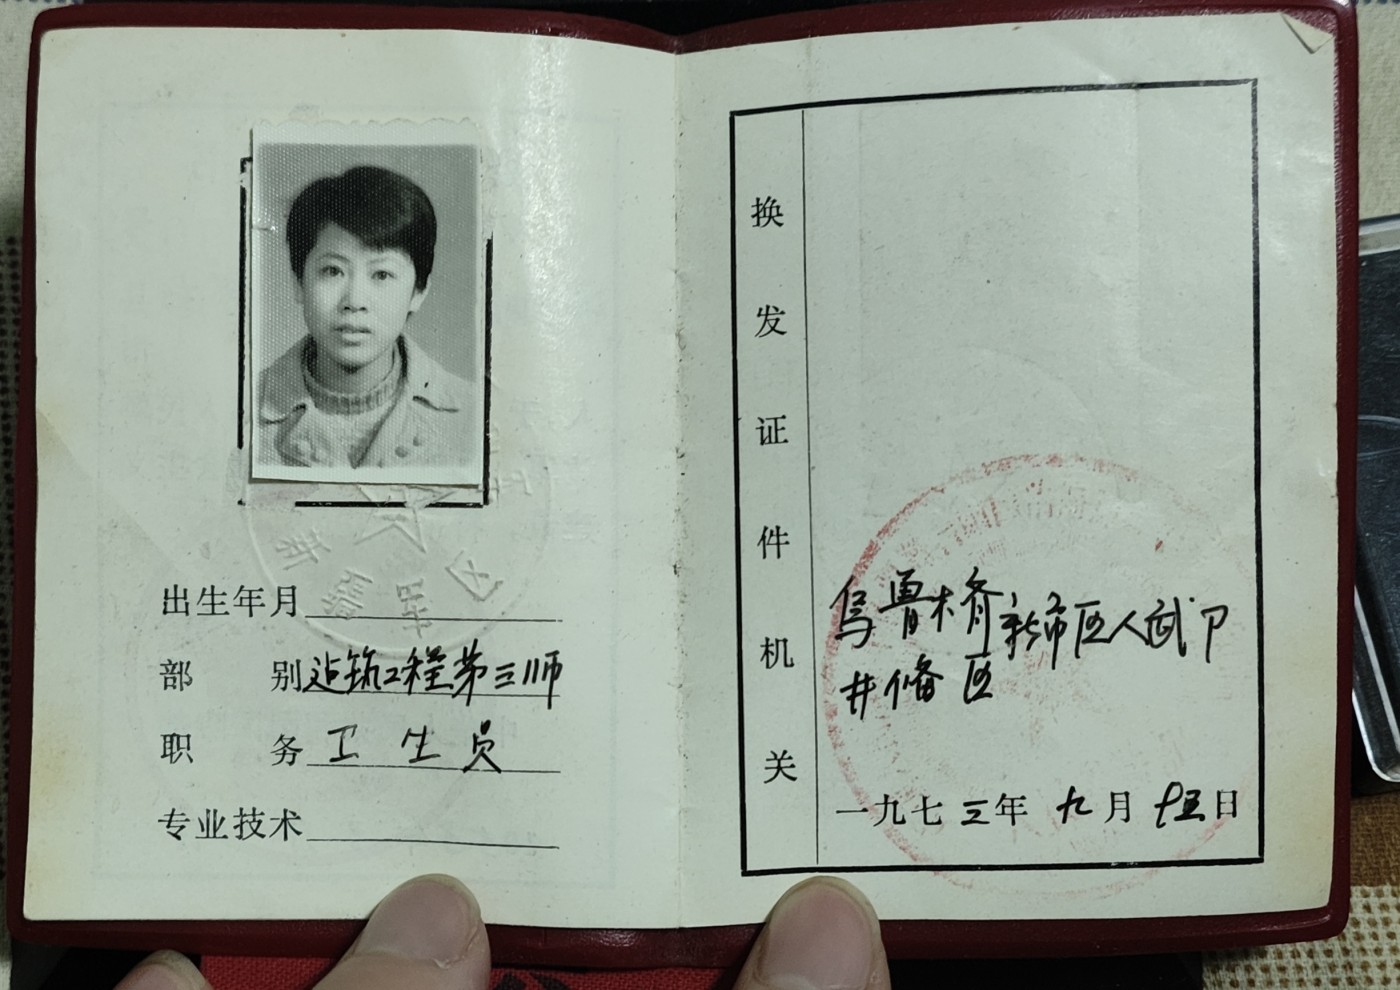 出生年月
部 别 建筑工程第三师
职 务 卫生员
专业技术
换发证件机关
乌鲁木齐新市区人武部
一九七三年 九月 十五日